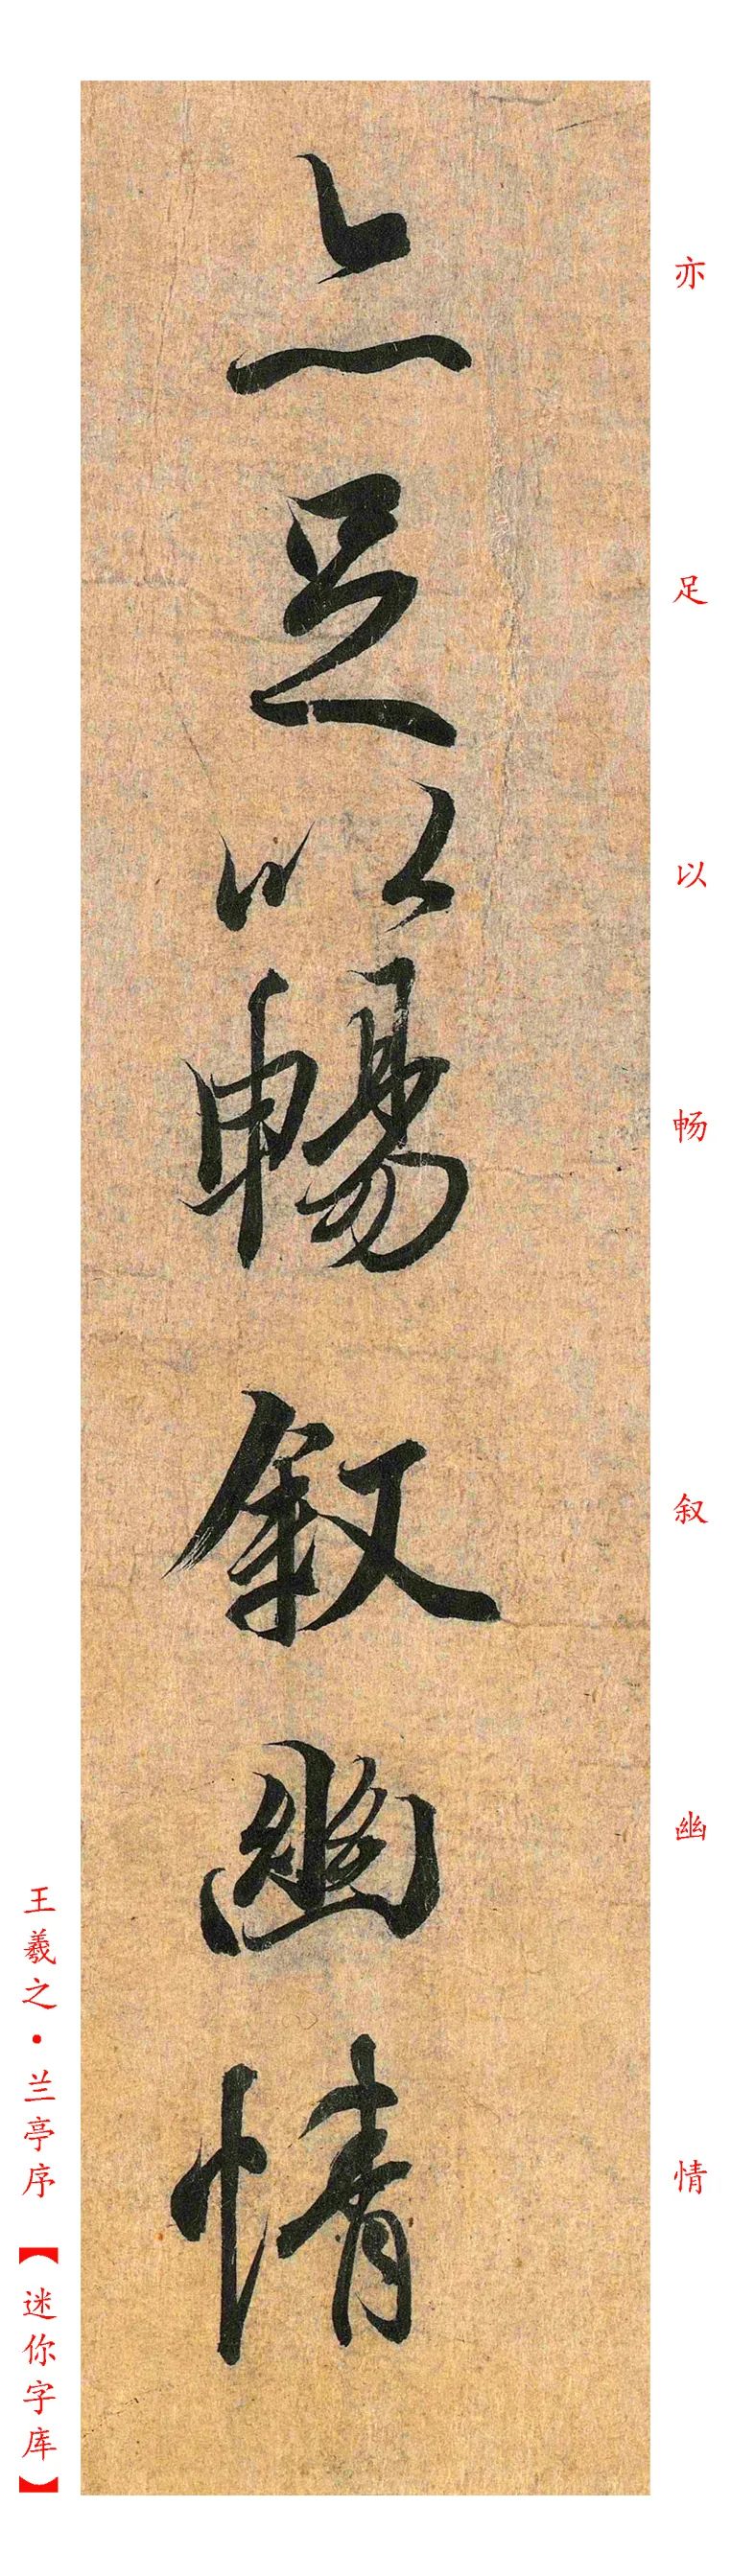 亦足以暢叙幽情
亦足以畅叙幽情
王羲之·兰亭序【迷你字库】